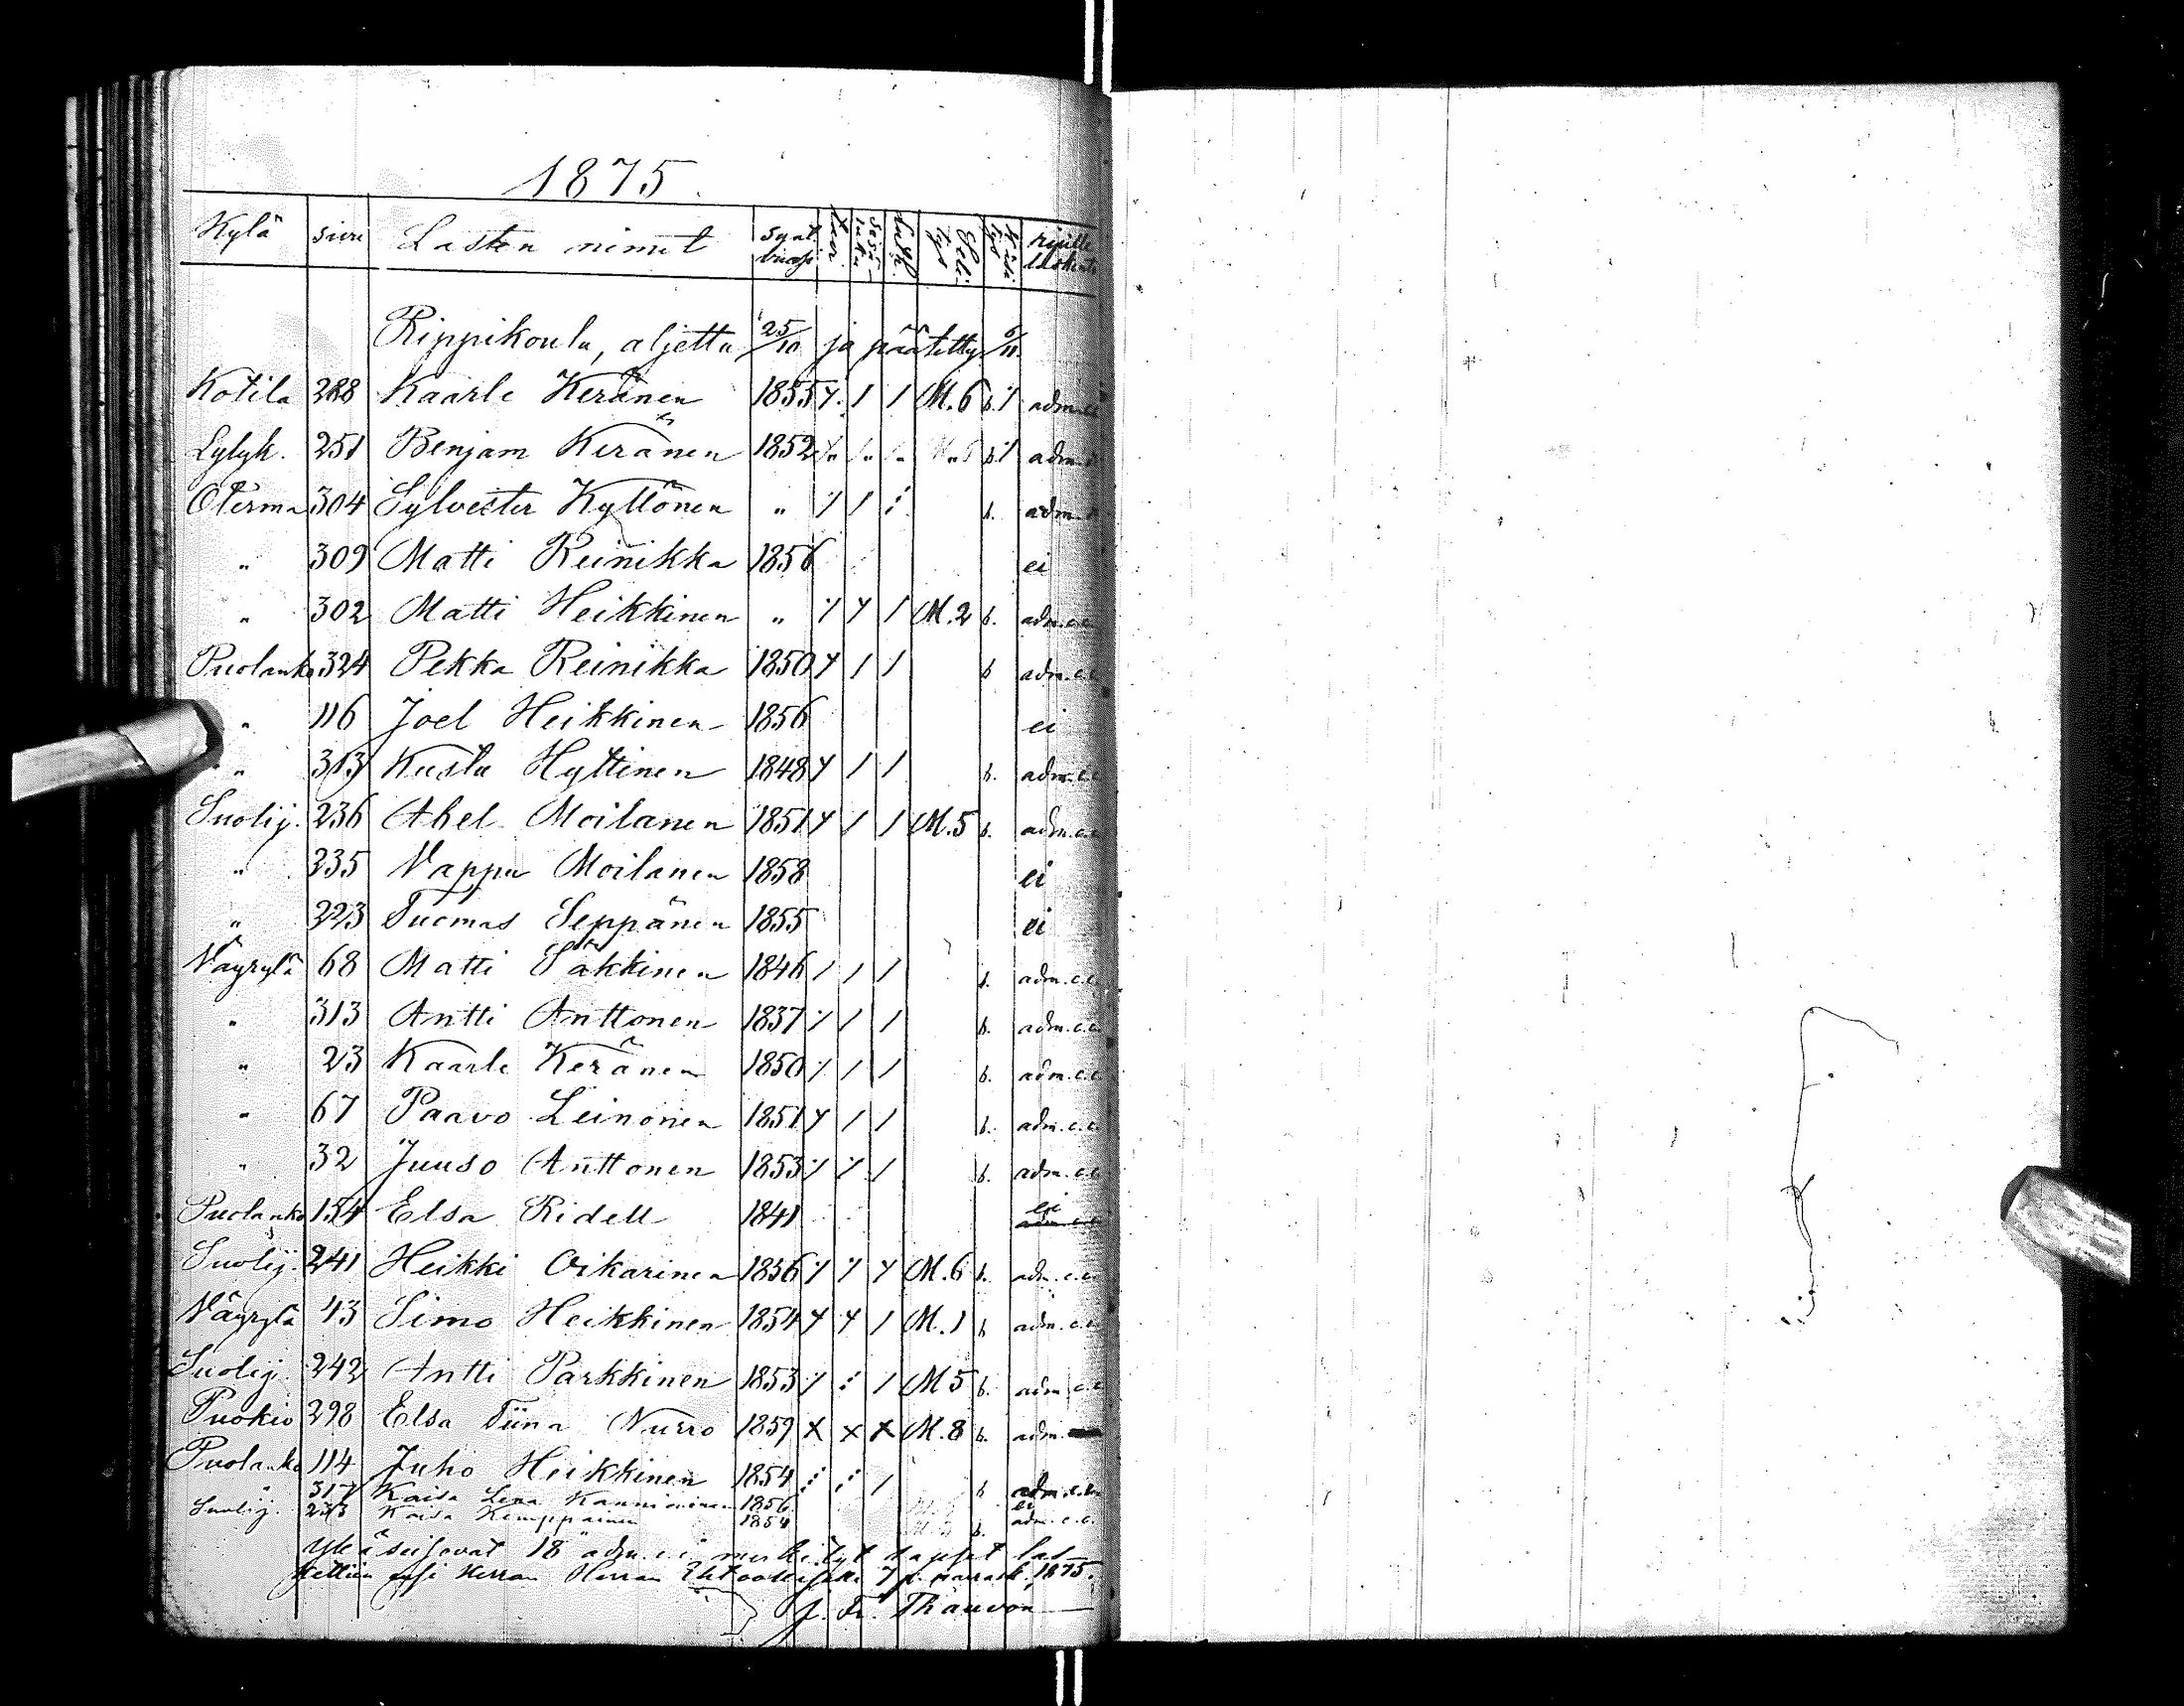 1875.
Kylä sivu Lasten nimet synt. vuosi
Rippikoulu, aljettu 25/10 ja päätetty 6/11
Kotila 288 Kaarle Keränen 1855 M.6 b. adm.
Lylyk. 251 Benjam Keränen 1852 b. adm.
Oterma 304 Sylvester Kyttönen " b. adm.
" 309 Matti Reinikka 1856 ei
" 302 Matti Heikkinen " M.2 b. adm.c.c.
Puolanko 324 Pekka Reinikka 1850 b adm.c.c.
" 116 Joel Heikkinen 1856 ei
" 313 Kusta Hyttinen 1848 b. adm.c.c.
Suolij. 236 Abel Moilanen 1851 M.5 b. adm.c.c.
" 235 Vappu Moilanen 1858 ei
" 223 Tuomas Seppänen 1855 ei
Väyrylä 68 Matti Säkkinen 1846 b. adm.c.c.
" 313 Antti Anttonen 1837 b. adm.c.c.
" 23 Kaarle Keränen 1850 b. adm.c.c.
" 67 Paavo Leinonen 1851 b. adm.c.c.
" 32 Juuso Anttonen 1853 b. adm.c.c.
Puolanko 154 Elsa Ridell 1841 ei adm.c.c.
Suolij. 241 Heikki Oikarinen 1856 M.6 b. adm.c.c.
Väyrylä 43 Simo Heikkinen 1854 M.1 b adm.c.c.
Suolij. 242 Antti Parkkinen 1853 M 5 b. adm.c.c.
Puokio 298 Elsa Tiina Nurro 1859 x x x M.8 b. adm.
Puolanko 114 Juho Heikkinen 1854 b adm.c.c.
" 317 Kaisa Lena 1856 ei
Suolij. Kaisa Kemppainen 1854 b. adm.c.c.
18 adm. merkityt lapset las
kettiin Herran 7 p. marrask. 1875.
J. Fr. Thauvón